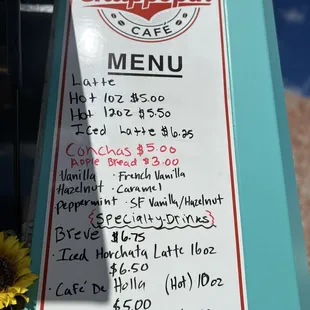 CAFÉ
MENU
Latte
Hot 10z $5.00
Hot 12oz $5.50
Iced Latte $6.25
Conchas $5.00
Apple Bread $3.00
Vanilla · French Vanilla
Hazelnut · Caramel
Peppermint · SF Vanilla/Hazelnut
{Specialty Drinks}
Breve $6.75
· Iced Horchata Latte 16oz
$6.50
· Café De Holla (Hot) 10oz
$5.00